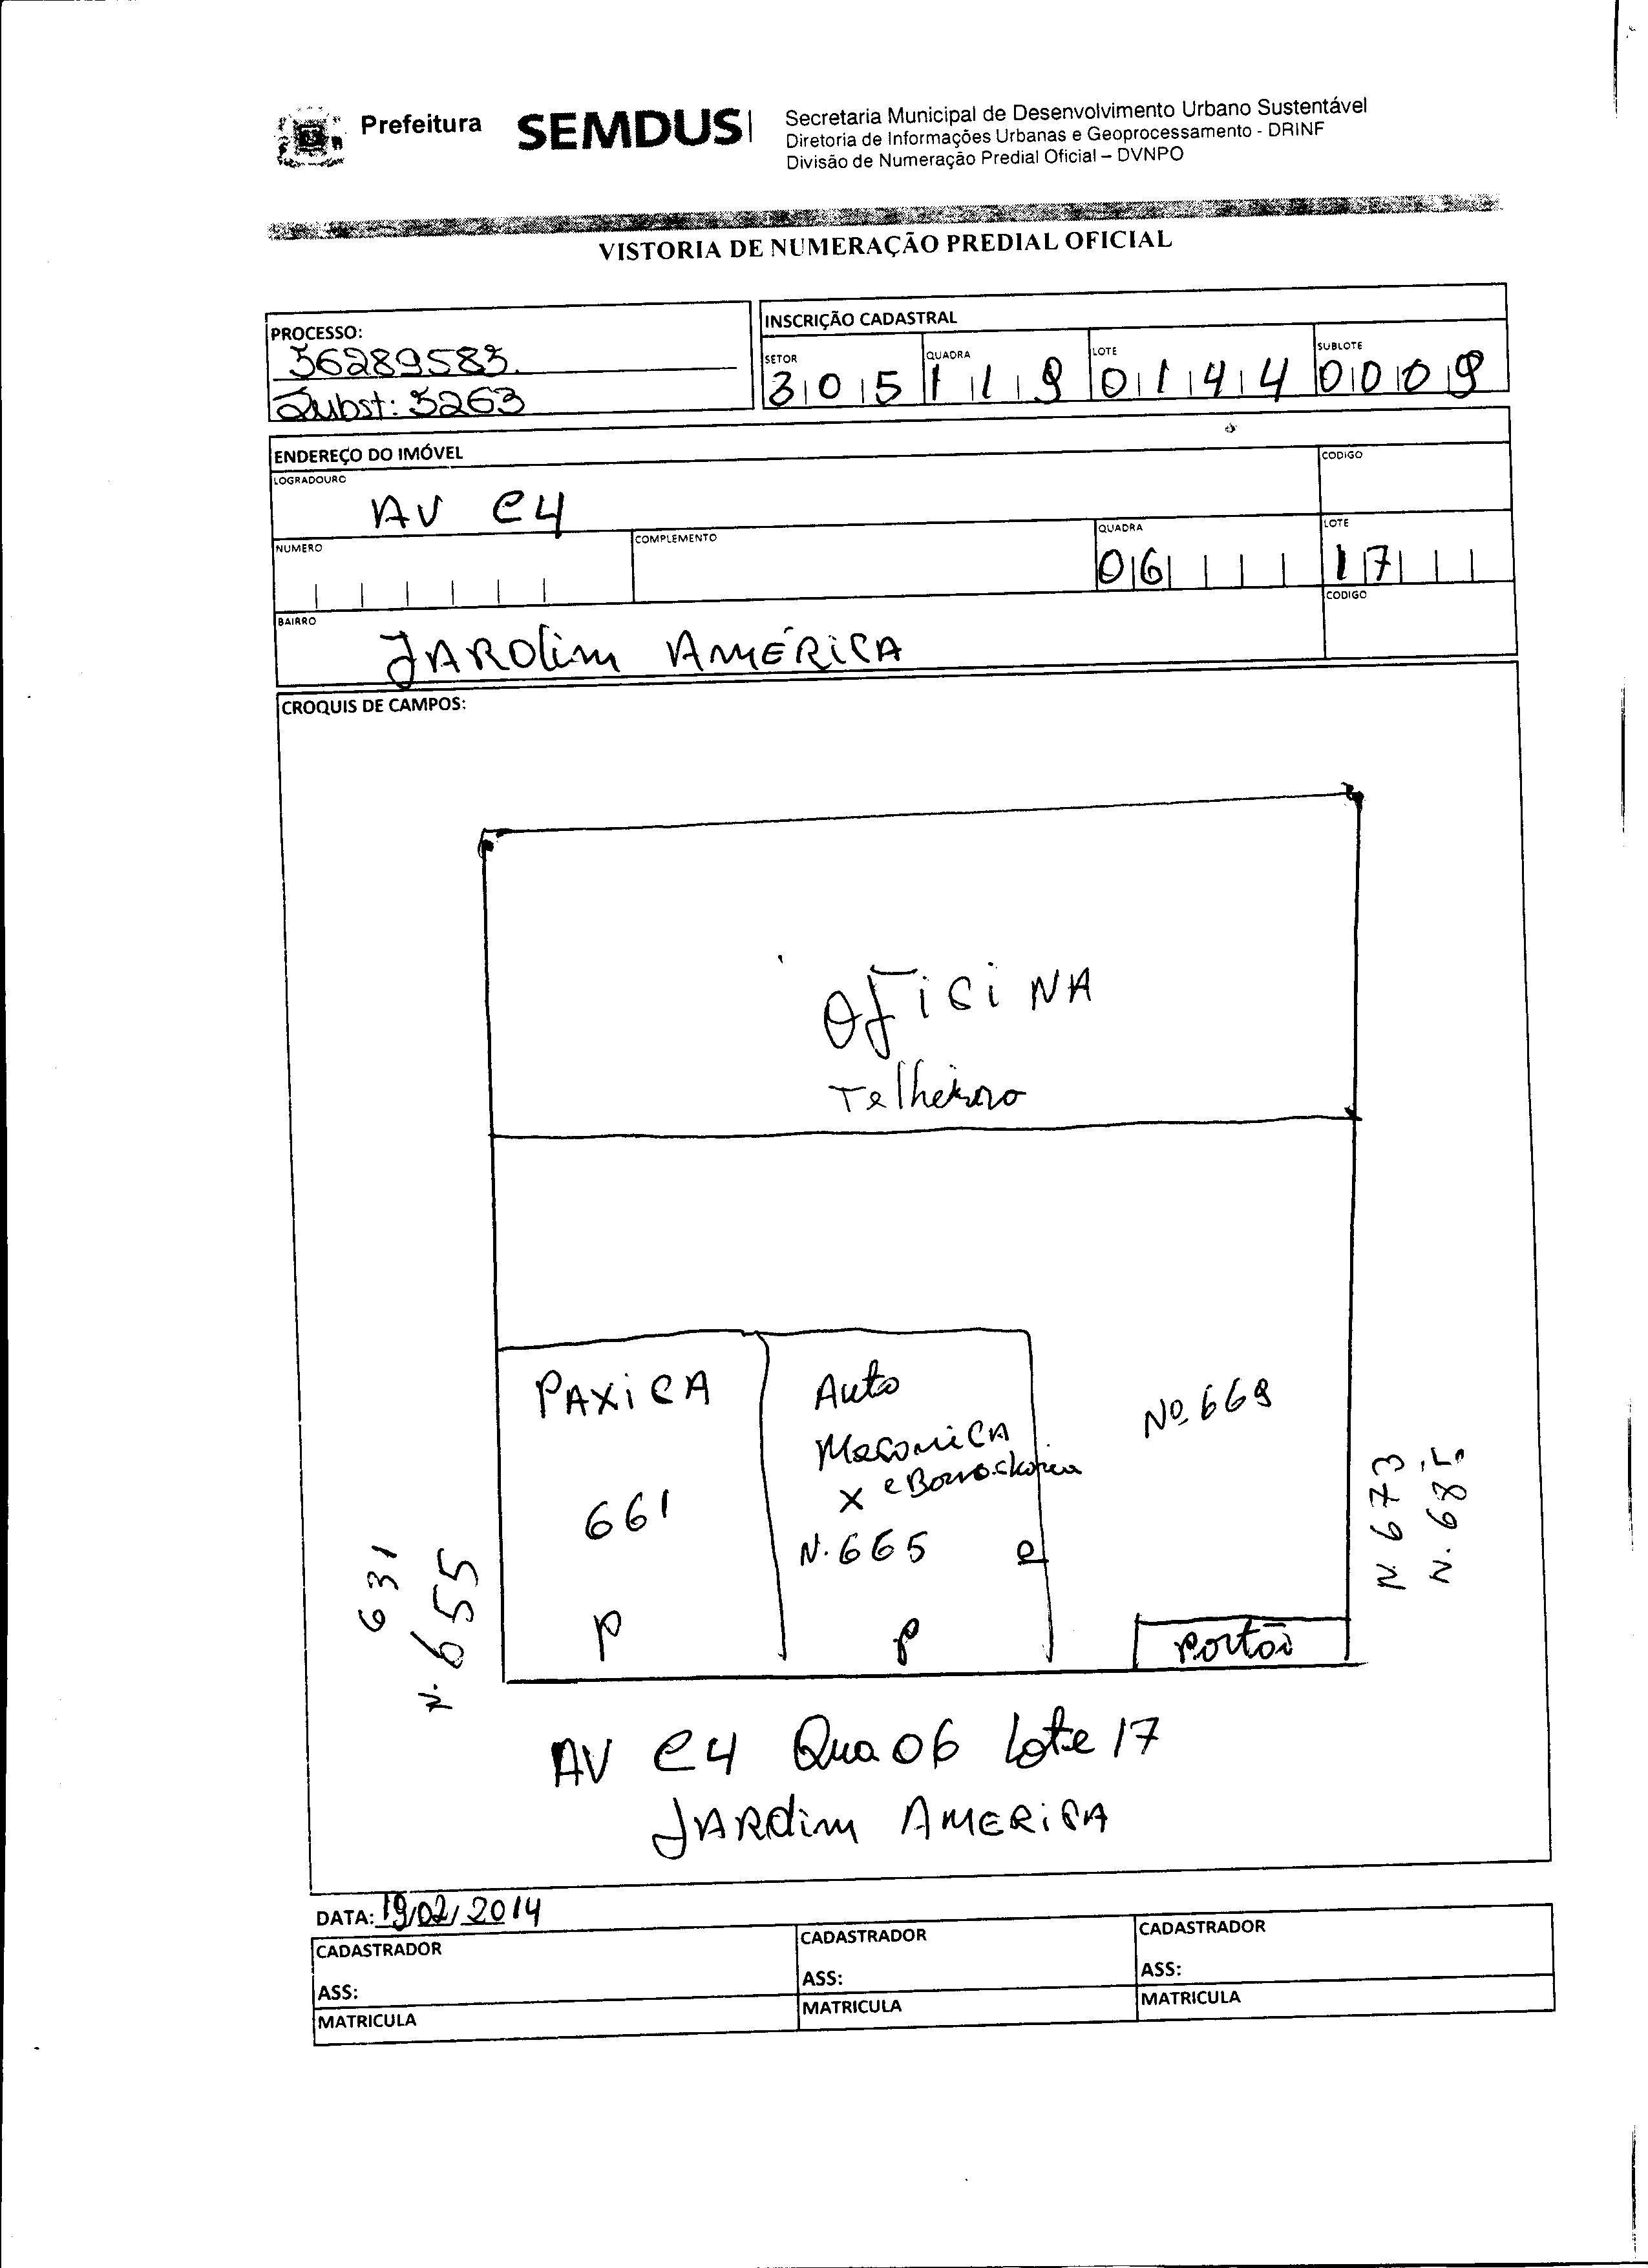 Prefeitura SEMDUS
Secretaria Municipal de Desenvolvimento Urbano Sustentável
Diretoria de Informações Urbanas e Geoprocessamento - DRINF
Divisão de Numeração Predial Oficial – DVNPO
VISTORIA DE NUMERAÇÃO PREDIAL OFICIAL
PROCESSO:
56289583.
Subst: 5263
INSCRIÇÃO CADASTRAL
SETOR QUADRA LOTE SUBLOTE
305 119 0144 0009
ENDEREÇO DO IMÓVEL
LOGRADOURO CODIGO
AV C4
NUMERO COMPLEMENTO QUADRA LOTE
06 17
BAIRRO CODIGO
JARDim AMÉRiCA
CROQUIS DE CAMPOS:
OFiCiNA
Telheiro
PAXiCA
661
P
Auto
MecaniCA
X e Borracharia
N. 665
P
P
Nº 669
Portão
631
N. 655
N. 673
N. 685
AV C4 Qua 06 Lote 17
JARdim AMERiCA
DATA: 19/02/2014
CADASTRADOR CADASTRADOR CADASTRADOR
ASS: ASS: ASS:
MATRICULA MATRICULA MATRICULA